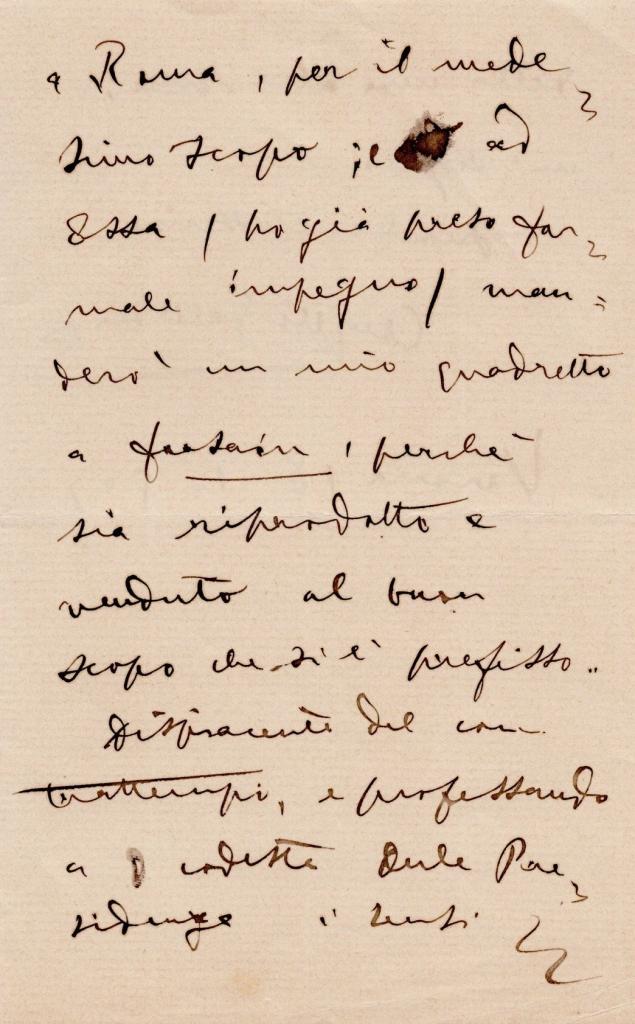 a Roma, per il mede
simo scopo; e ad
Essa / ho già preso for-
male impegno / man=
derò un mio quadretto
a , perchè
sia riprodotto e
venduto al buon
scopo che si è prefisso..
Dispiacente del con
trattempi, e professando
a codesta Onle Pre-
sidenza i sensi